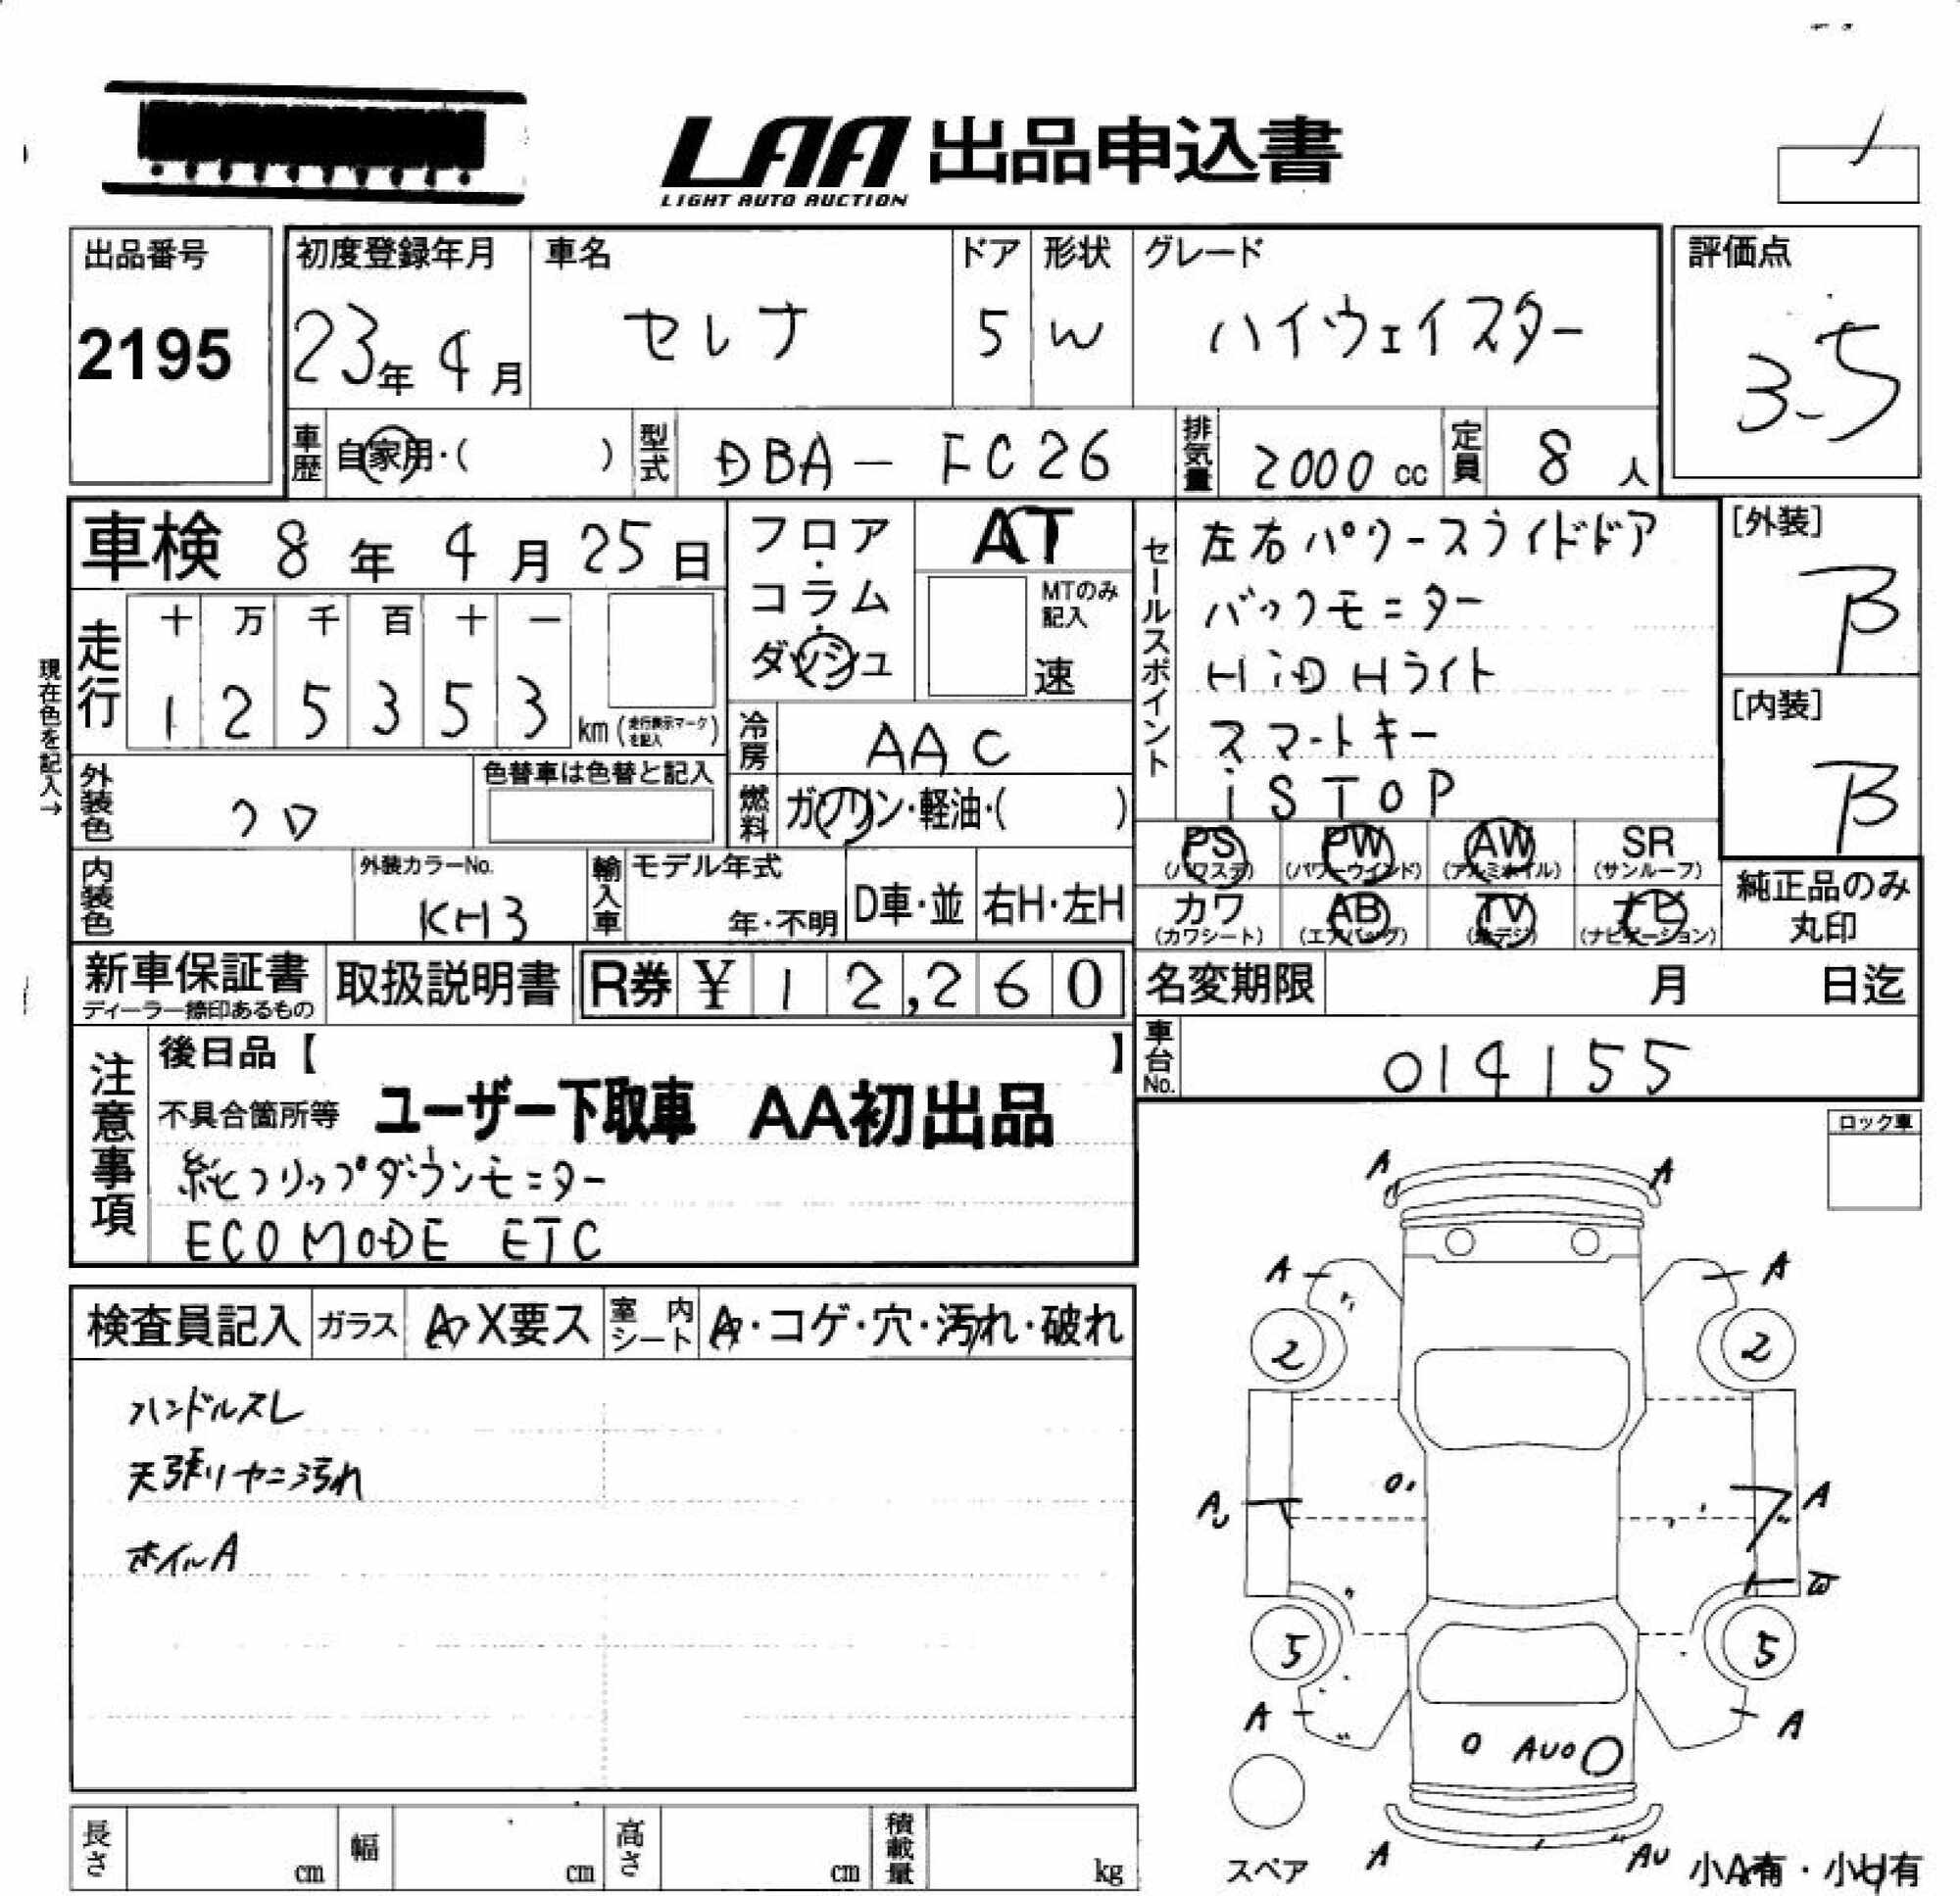 LAA 出品申込書
LIGHT AUTO AUCTION
出品番号
2195
初度登録年月
23年 4月
車名
セレナ
ドア
5
形状
W
グレード
ハイウェイスター
評価点
3.5
車歴
自家用・( )
型式
DBA-FC26
排気量
2000 cc
定員
8 人
車検 8年 4月 25日
フロア・コラム・ダッシュ
AT
MTのみ記入
速
セールスポイント
左右パワースライドドア
バックモニター
HiD Hライト
スマートキー
iSTOP
[外装]
B
[内装]
B
現在色を記入→
走行
十 万 千 百 十 一
1 2 5 3 5 3 km (走行表示マークを記入)
冷房
AAC
外装色
クロ
色替車は色替と記入
燃料
ガソリン・軽油・( )
PS (パワステ)
PW (パワーウインド)
AW (アルミホイル)
SR (サンルーフ)
カワ (カワシート)
AB (エアバッグ)
TV (地デジ)
ナビ (ナビゲーション)
純正品のみ丸印
内装色
外装カラーNo.
KH3
輸入車
モデル年式
年・不明
D車・並
右H・左H
新車保証書
ディーラー捺印あるもの
取扱説明書
R券 ¥ 12,260
名変期限 月 日迄
車台No.
014155
注意事項
後日品【 】
不具合箇所等
ユーザー下取車 AA初出品
純フリップダウンモニター
ECO MODE ETC
ロック車
検査員記入
ガラス
A X要ス
室内シート
A・コゲ・穴・汚れ・破れ
ハンドルスレ
天張りヤニ汚れ
ホイルA
A A
A A
2 2
A
A
5 5
A A
AU
スペア
A AU
小A有・小U有
長さ cm
幅 cm
高さ cm
積載量 kg